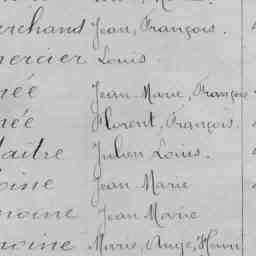 erchand Jean, François.
ercier Louis
rée Jean Marie, François
rée Florent, François.
aitre Julien Louis.
oine Jean Marie
moine Jean Marie
moine Marie, Ange, Henri